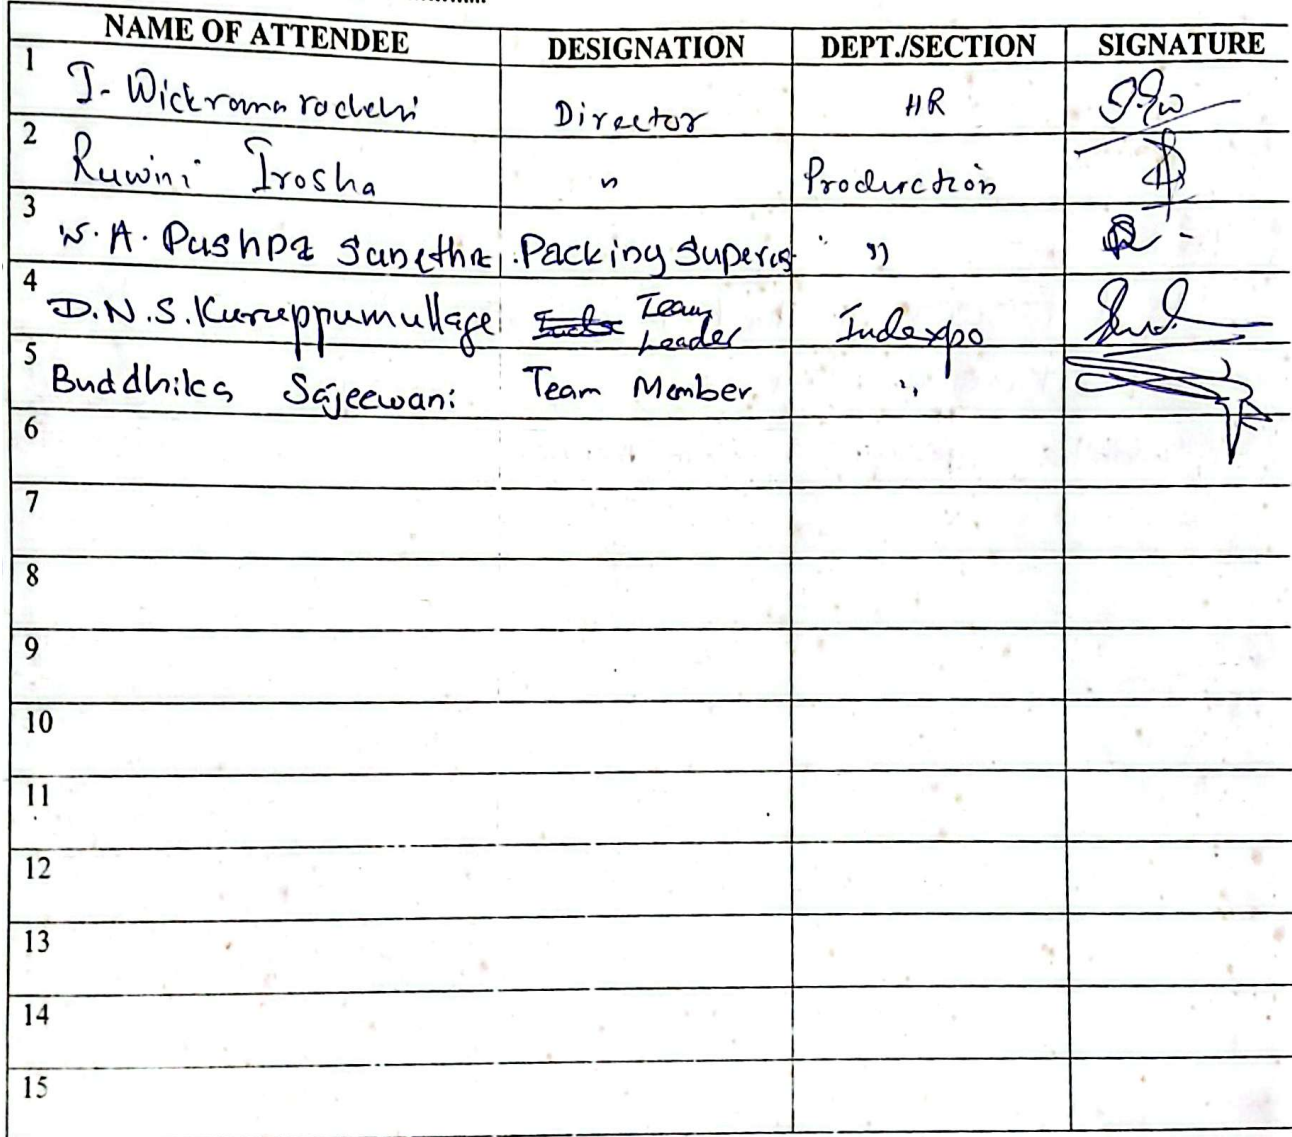 NAME OF ATTENDEE DESIGNATION DEPT./SECTION SIGNATURE
1 J. Wickramarachchi Director HR
2 Ruwini Irosha " Production
3 W. A. Pushpa Packing Supervis "
4 D.N.S. Kuruppumullage Team Leader Indexpo
5 Buddhika Sajeewani Team Member "
6
7
8
9
10
11
12
13
14
15